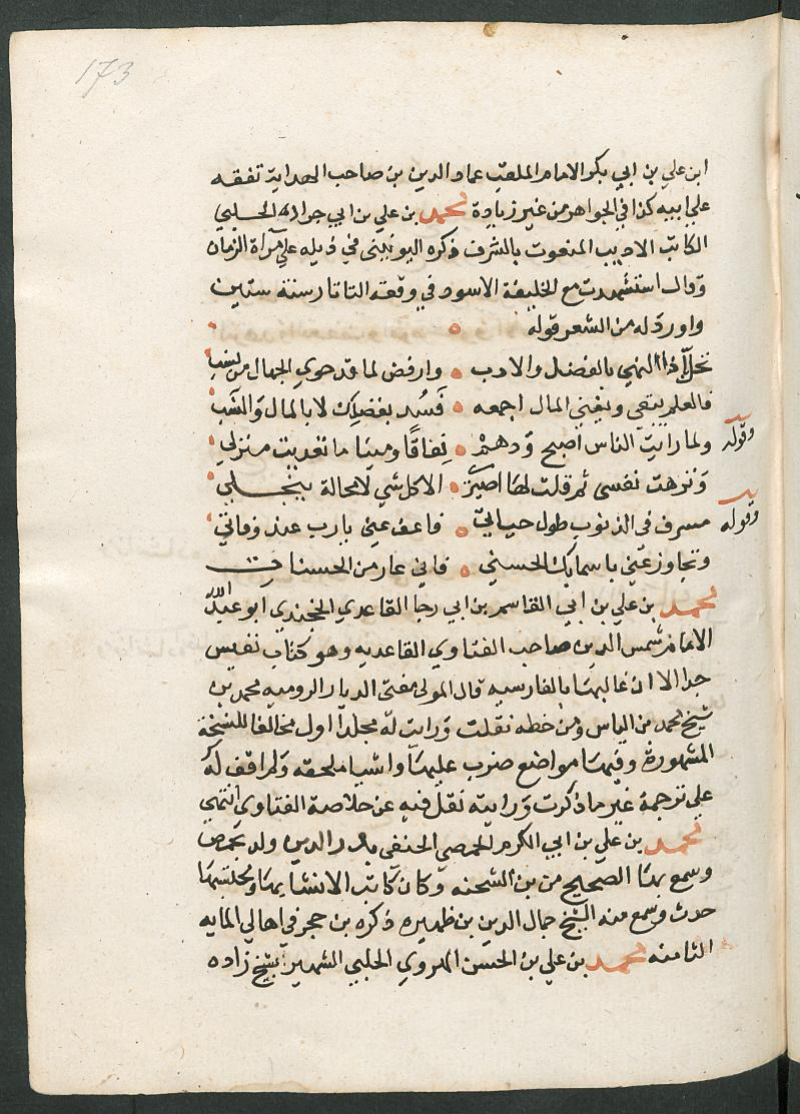 173
ابن علي بن ابي بكر الامام الملقب عماد الدين بن صاحب الهداية تفقه
على ابيه كذا في الجواهر من غير زيادة محمد بن علي بن ابي جرادة الحلبي
الكاتب الاديب المنعوت بالشرف ذكره اليونيني في ذيله على مرآة الزمان
وقال استشهدت مع الخليفة الاسود في وقعة التاتار سنة ستين
واورد له من الشعر قوله
تحل اذا النهي بالفضل والادب وارفض لما قد حوى الجهال من نشب
فالعلم يبقى ويفنى المال اجمعه فسد بفضلك لا بالمال والنشب
وقوله ولما رايت الناس اصبح ودهم نفاقا ومينا ما تعديت منزلي
ونزهت نفسي ثم قلت لها اصبري الا كل شي لا محالة ينجلي
وقوله مسرف في الذنوب طول حياتي فاعف عني يا رب عند وفاتي
وتجاوز عني باسمايك الحسنى فاني عار من الحسنات
محمد بن علي بن ابي القاسم بن ابي رجا القاعدي الخجندي ابو عبد الله
الامام شمس الدين صاحب الفتاوي القاعدية وهو كتاب نفيس
جدا الا ان غالبها بالفارسيه قال المولى مفتى الديار الروميه محمد بن
شيخ محمد بن الياس ومن خطه نقلت ورايت له مجلدا اول مخالفا للنسخة
المشهورة وفيها مواضع ضرب عليها واشيا ملحقه ولم اقف له
على ترجمة غير ما ذكرت ورايته نقل فيه عن خلاصة الفتاوي انتهى
محمد بن علي بن ابي الكرم الحمصي الحنفي بدر الدين ولد بحمص
وسمع بها الصحيح من بن الشحنه وكان كاتب الانشا بها وبحلب
حدث وسمع منه الشيخ جمال الدين بن ظهيره ذكره بن حجر في اهالي المايه
الثامنه محمد بن علي بن الحسن الهروي الحلبي الشهير بشيخ زاده